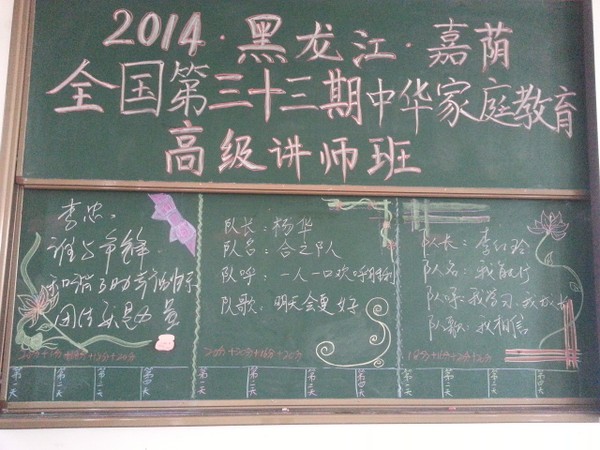 2014·黑龙江·嘉荫
全国第三十三期中华家庭教育
高级讲师班
李忠
谁与争锋
团结就是力量
队长:杨华
队名:合之队
队呼:一人一口欢呼胜利
队歌:明天会更好
队长:李红玲
队名:我能行
队呼:我学习
队歌:我相信
20分+20分+18分+20分
第一天
第二天
第三天
第四天
第一天
第二天
第三天
第四天
第一天
第二天
第三天
第四天